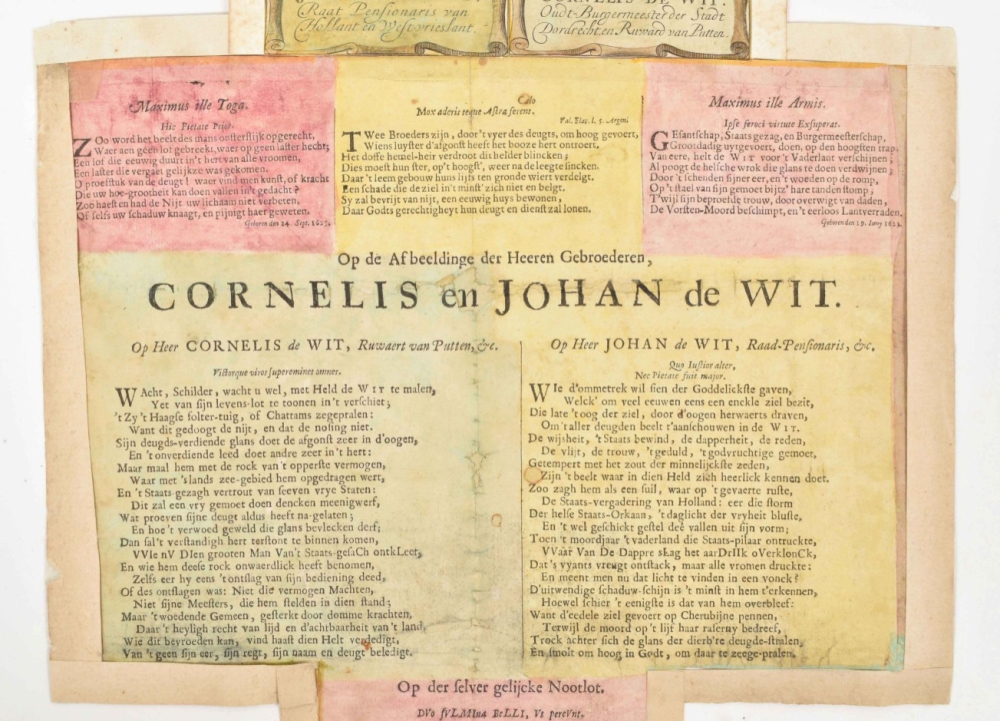 Raat Pensionaris van
Hollant en Westvrieslant.
CORNELIS DE WIT.
Oudt-Burgermeester der Stadt
Dordrecht, en Ruward van Putten.
Maximus ille Toga.
Hic Pietate Prior.
ZOo word het beelt des mans onsterflijk opgerecht,
Waer aen geen lof gebreekt, waer op geen laster hecht;
Een lof die eeuwig duurt in 't hert van alle vroomen,
Een laster die vergaet gelijkze was gekomen.
O proefstuk van de deugt! waer vind men kunst, of kracht
Die uw hoe-grootheit kan doen vallen in 't gedacht?
Zoo haest en had de Nijt uw lichaam niet verbeten,
Of selfs uw schaduw knaagt, en pijnigt haer geweten.
Geboren den 24. Sept. 1625.
Cælo
Mox aderis teque Astra ferent.
Val. Flac. l. 5. Argon.
TWee Broeders zijn, door 't vyer des deugts, om hoog gevoert,
Wiens luyster d'afgonst heeft het booze hert ontroert.
Het doffe hemel-heir verdroot dit helder blincken;
Dies moest hun ster, op 't hoogst', weer na de leegte sincken.
Daar 't leem gebouw huns lijfs ten gronde wiert verdelgt.
Een schade die de ziel in 't minst' zich niet en belgt.
Sy zal bevrijt van nijt, een eeuwig huys bewonen,
Daar Godts gerechtigheyt hun deugt en dienst zal lonen.
Maximus ille Armis.
Ipse feroci virtute Exsuperat.
GEsantschap, Staats gezag, en Burgermeesterschap,
Grootdadig uytgevoert, doen, op den hoogsten trap
Van eere, helt de WIT voor 't Vaderlant verschijnen;
Al poogt de helsche wrok die glans te doen verdwijnen;
Door 't schenden sijner eer, en 't woeden op de romp,
Op 't stael van sijn gemoet bijtz' hare tanden stomp;
T'wijl sijn beproefde trouw, door overwigt van daden,
De Vorsten-Moord beschimpt, en 't eerloos Lantverraden.
Geboren den 19. Iuny 1623.
Op de Afbeeldinge der Heeren Gebroederen,
CORNELIS en JOHAN de WIT.
Op Heer CORNELIS de WIT, Ruwaert van Putten, &c.
Victorque viros supereminet omnes.
WAcht, Schilder, wacht u wel, met Held de WIT te malen,
Yet van sijn levens-lot te toonen in 't verschiet;
't Zy 't Haagse folter-tuig, of Chattams zegepralen:
Want dit gedoogt de nijt, en dat de noling niet.
Sijn deugds-verdiende glans doet de afgonst zeer in d'oogen,
En 't onverdiende leed doet andre zeer in 't hert:
Maar maal hem met de rock van 't opperste vermogen,
Waar met 'slands zee-gebied hem opgedragen wert,
En 't Staats gezagh vertrout van seeven vrye Staten:
Dit zal een vry gemoet doen dencken meenigwerf,
Wat proeven sijne deugt aldus heeft na-gelaten;
En hoe 't verwoed geweld die glans bevlecken derf;
Dan sal 't verstandigh hert terstont te binnen komen,
VVIe nV DIen grooten Man Van't Staats-gesaCh ontkLeet,
En wie hem deese rock onwaerdlick heeft benomen,
Zelfs eer hy eens 't ontslag van sijn bediening deed,
Of des ontslagen was: Niet die vermogen Machten,
Niet sijne Meesters, die hem stelden in dien stand;
Maar 't woedende Gemeen, gesterkt door domme krachten,
Daar 't heyligh recht van lijd en d'achtbaarheit van 't land,
Wie dit bevroeden kan, vind haast dien Helt verdedigt,
Van 't geen sijn eer, sijn regt, sijn naam en deugt beledigt.
Op Heer JOHAN de WIT, Raad-Pensionaris, &c.
Quo Iustior alter,
Nec Pietate fuit major.
WIe d'ommetrek wil sien der Goddelickste gaven,
Welck' om veel eeuwen eens een enckle ziel bezit,
Die late 't oog der ziel, door d'oogen herwaerts draven,
Om t'aller deugden beelt t'aanschouwen in de WIT.
De wijsheit, 't Staats bewind, de dapperheit, de reden,
De vlijt, de trouw, 't geduld, 't godvruchtige gemoet,
Getempert met het zout der minnelijckste zeden,
Zijn 't beelt waar in dien Held zich heerlick kennen doet.
Zoo zagh hem als een suil, waar op 't gevaerte rustte,
De Staats-vergadering van Holland: eer die storm
Der helse Staats-Orkaan, 't daglicht der vryheit bluste,
En 't wel geschickt gestel deê vallen uit sijn vorm;
Toen 't moordjaar 't vaderland die Staats-pilaar ontruckte,
VVaar Van De Dappre sLag het aarDrIIk oVerkLonCk,
Dat 's vyants vreugt ontstack, maar alle vromen druckte:
En meent men nu dat licht te vinden in een vonck?
D'uitwendige schaduw-schijn is 't minst in hem t'erkennen,
Hoewel schier 't eenigste is dat van hem overbleef:
Want d'eedele ziel gevoert op Cherubijne pennen,
Terwijl de moord op 't lijf haar raserny bedreef,
Trock achter sich de glans der dierb're deugde-stralen,
En smolt om hoog in Godt, om daar te zeege-pralen.
Op der selver gelijcke Nootlot.
DVo fVLMIna BeLLI, Vt pereVnt.